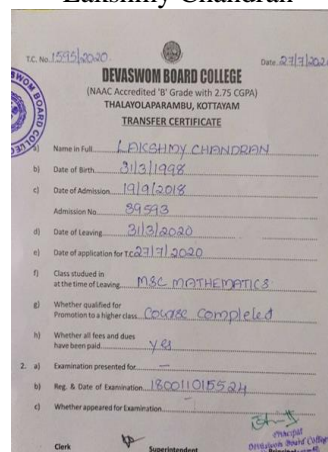 Lakshmy Chandran
T.C. No. 1595/2020 Date. 27/7/202
DEVASWOM BOARD COLLEGE
(NAAC Accredited 'B' Grade with 2.75 CGPA)
THALAYOLAPARAMBU, KOTTAYAM
TRANSFER CERTIFICATE
a) Name in Full LAKSHMY CHANDRAN
b) Date of Birth 31/3/1998
c) Date of Admission 19/9/2018
Admission No. 39593
d) Date of Leaving 31/3/2020
e) Date of application for T.C. 27/7/2020
f) Class studued in
at the time of Leaving MSC MATHEMATICS
g) Whether qualified for
Promotion to a higher class Course Completed
h) Whether all fees and dues
have been paid yes
2. a) Examination presented for –
b) Reg. & Date of Examination 180011015524
c) Whether appeared for Examination –
Principal
Devaswom Board College
Clerk Superintendent